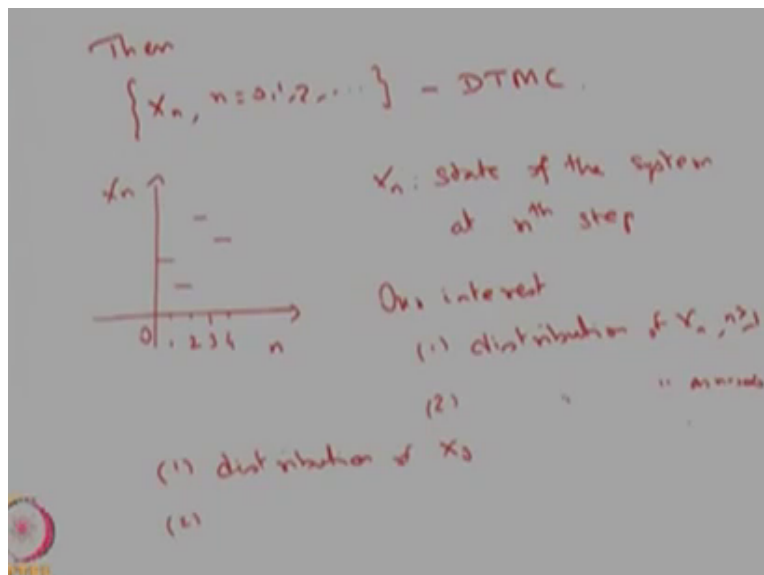 Then
{Xn, n=0,1,2,...} - DTMC.
Xn
0 1 2 3 4 n
Xn: state of the system
at nth step
Our interest
(1) distribution of Xn, n≥1
(2) " " as n→∞
(1) distribution of X0
(2)